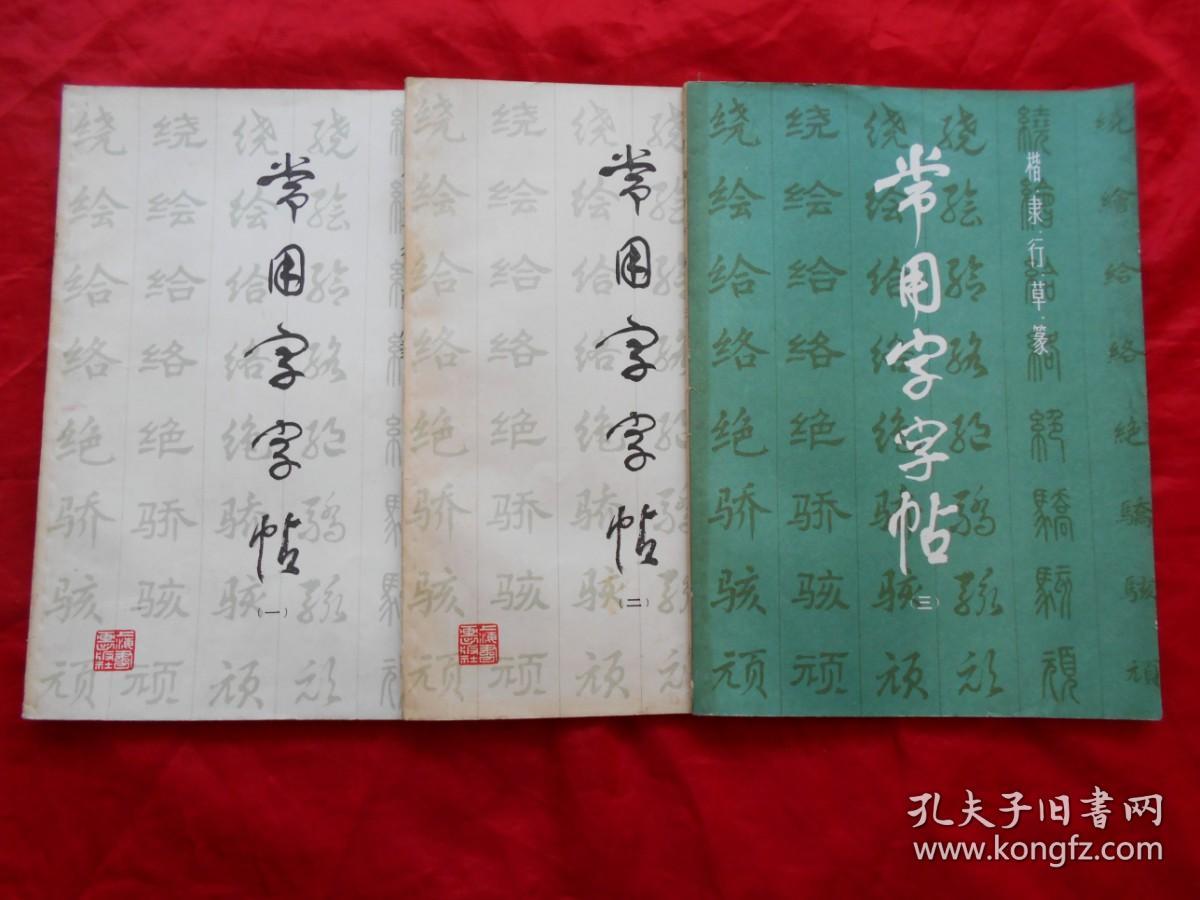 常用字字帖
(一)
上海书画社
绕 绕 绕 绕
绘 绘 绘 绘
给 给 给 给
络 络 络 络
绝 绝 绝 绝
骄 骄 骄 骄
骇 骇 骇 骇
顽 顽 顽 顽
常用字字帖
(二)
上海书画社
绕 绕 绕 绕
绘 绘 绘 绘
给 给 给 给
络 络 络 络
绝 绝 绝 绝
骄 骄 骄 骄
骇 骇 骇 骇
顽 顽 顽 顽
楷·隶·行·草·篆
常用字字帖
(三)
绕 绕 绕 绕 繞 繞
绘 绘 绘 绘 繪 繪
给 给 给 给 給 給
络 络 络 络 絡 絡
绝 绝 绝 绝 絕 絕
骄 骄 骄 骄 驕 驕
骇 骇 骇 骇 駭 駭
顽 顽 顽 顽 頑 頑
孔夫子旧书网
www.kongfz.com